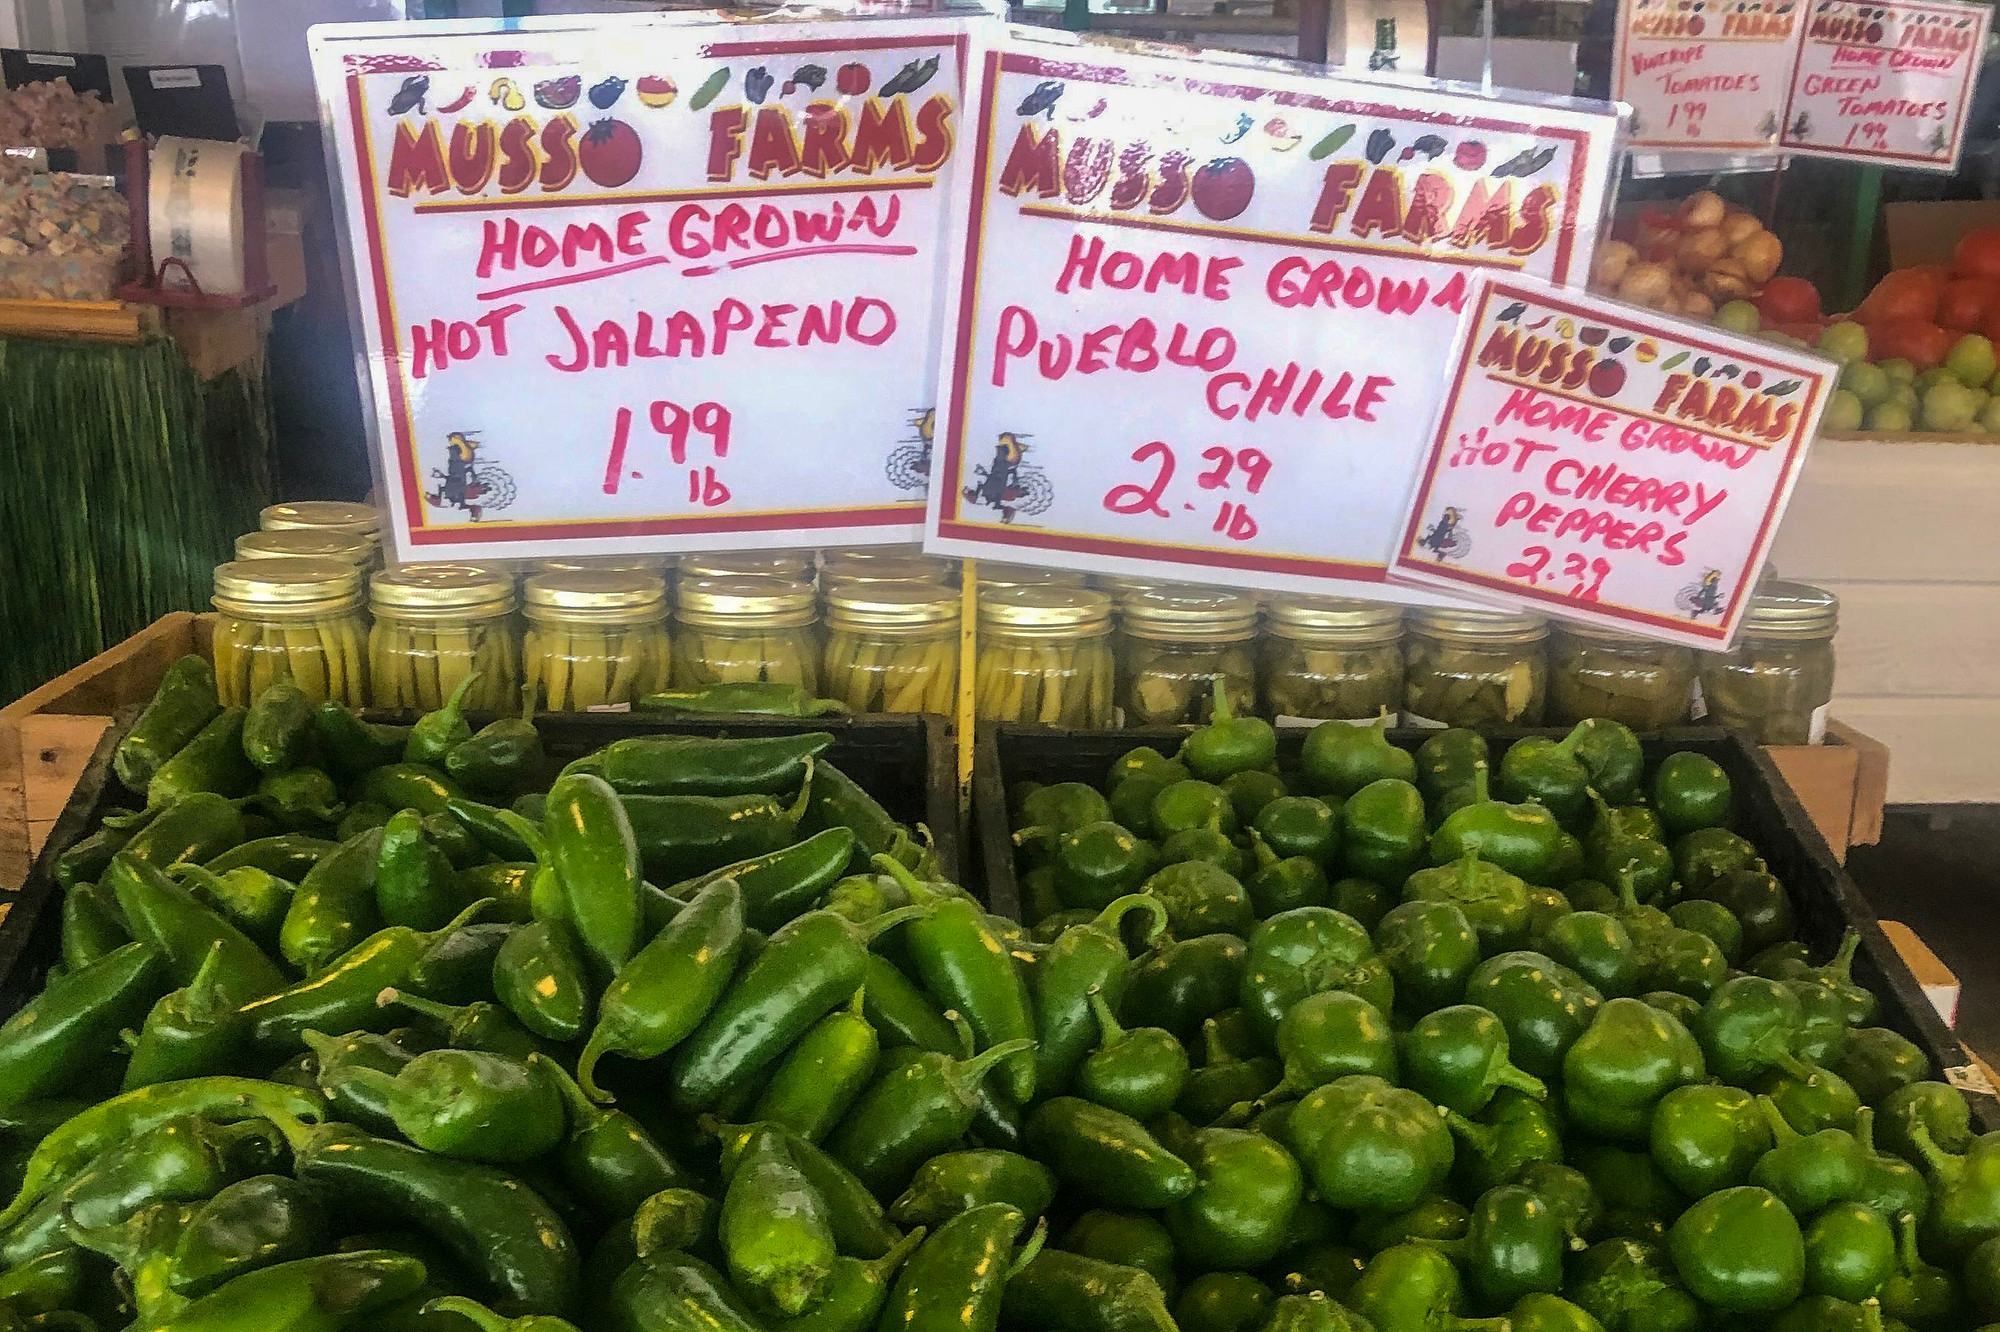 MUSSO FARMS
HOME GROWN
HOT JALAPENO
1.99
lb
MUSSO FARMS
HOME GROWN
PUEBLO
CHILE
2.29
lb
MUSSO FARMS
HOME GROWN
HOT CHERRY
PEPPERS
2.29
lb
MUSSO FARMS
VINERIPE
TOMATOES
1.99
lb
MUSSO FARMS
HOME GROWN
GREEN
TOMATOES
1.99
lb